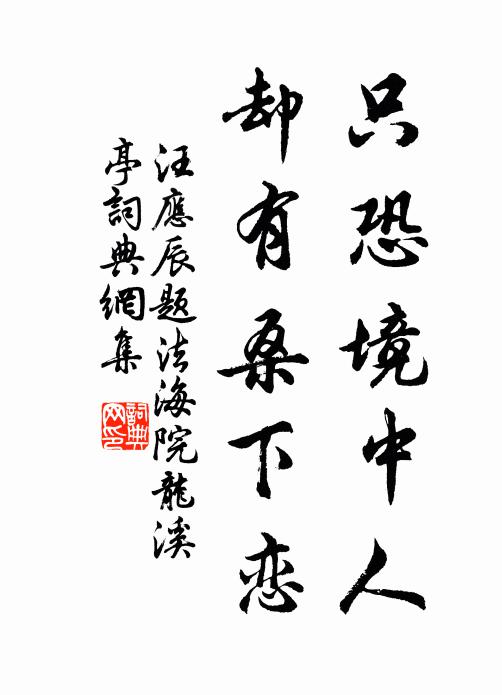 只恐境中人
却有桑下恋
汪應辰題法海院龍溪
亭詞典網集
詞典
网印